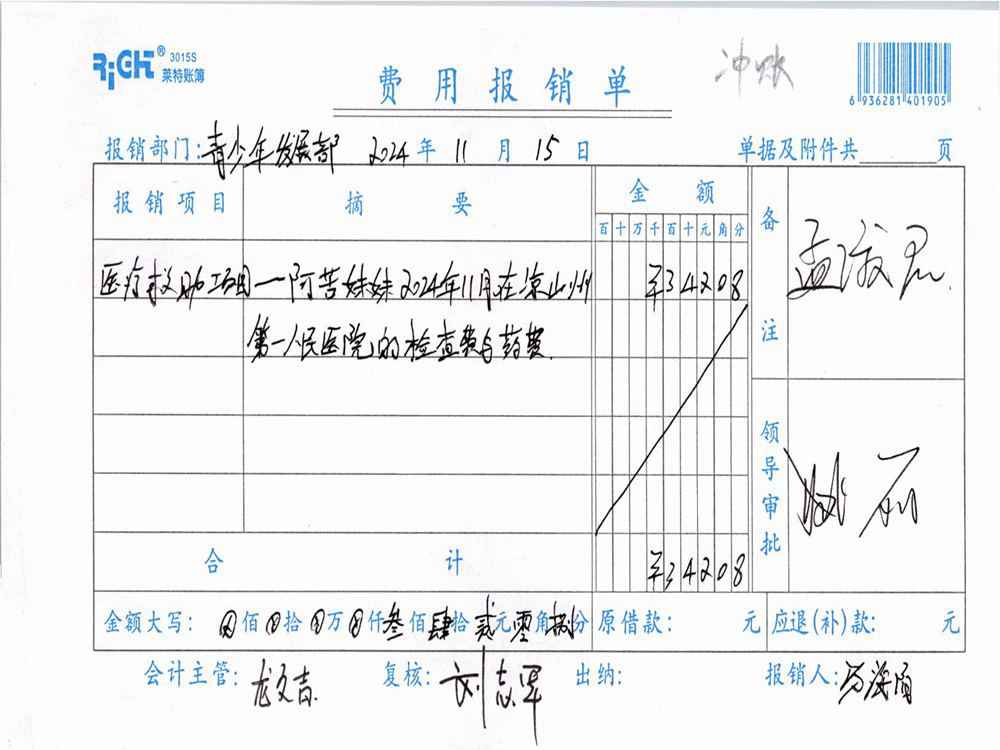 RiCH® 3015S
莱特账簿
费用报销单
冲账
6 936281 401905
报销部门:青少年发展部 2024年11月15日 单据及附件共 页
报销项目 摘要 金额 备注
百十万千百十元角分
医疗救助项目—阿苦妹妹2024年11月在凉山州 ¥34208
第一人民医院的检查费与药费.
领导审批
合计 ¥34208
金额大写: 佰 拾 万 仟叁佰肆拾贰元零角捌分 原借款: 元 应退(补)款: 元
会计主管:龙文吉 复核:刘志军 出纳: 报销人: